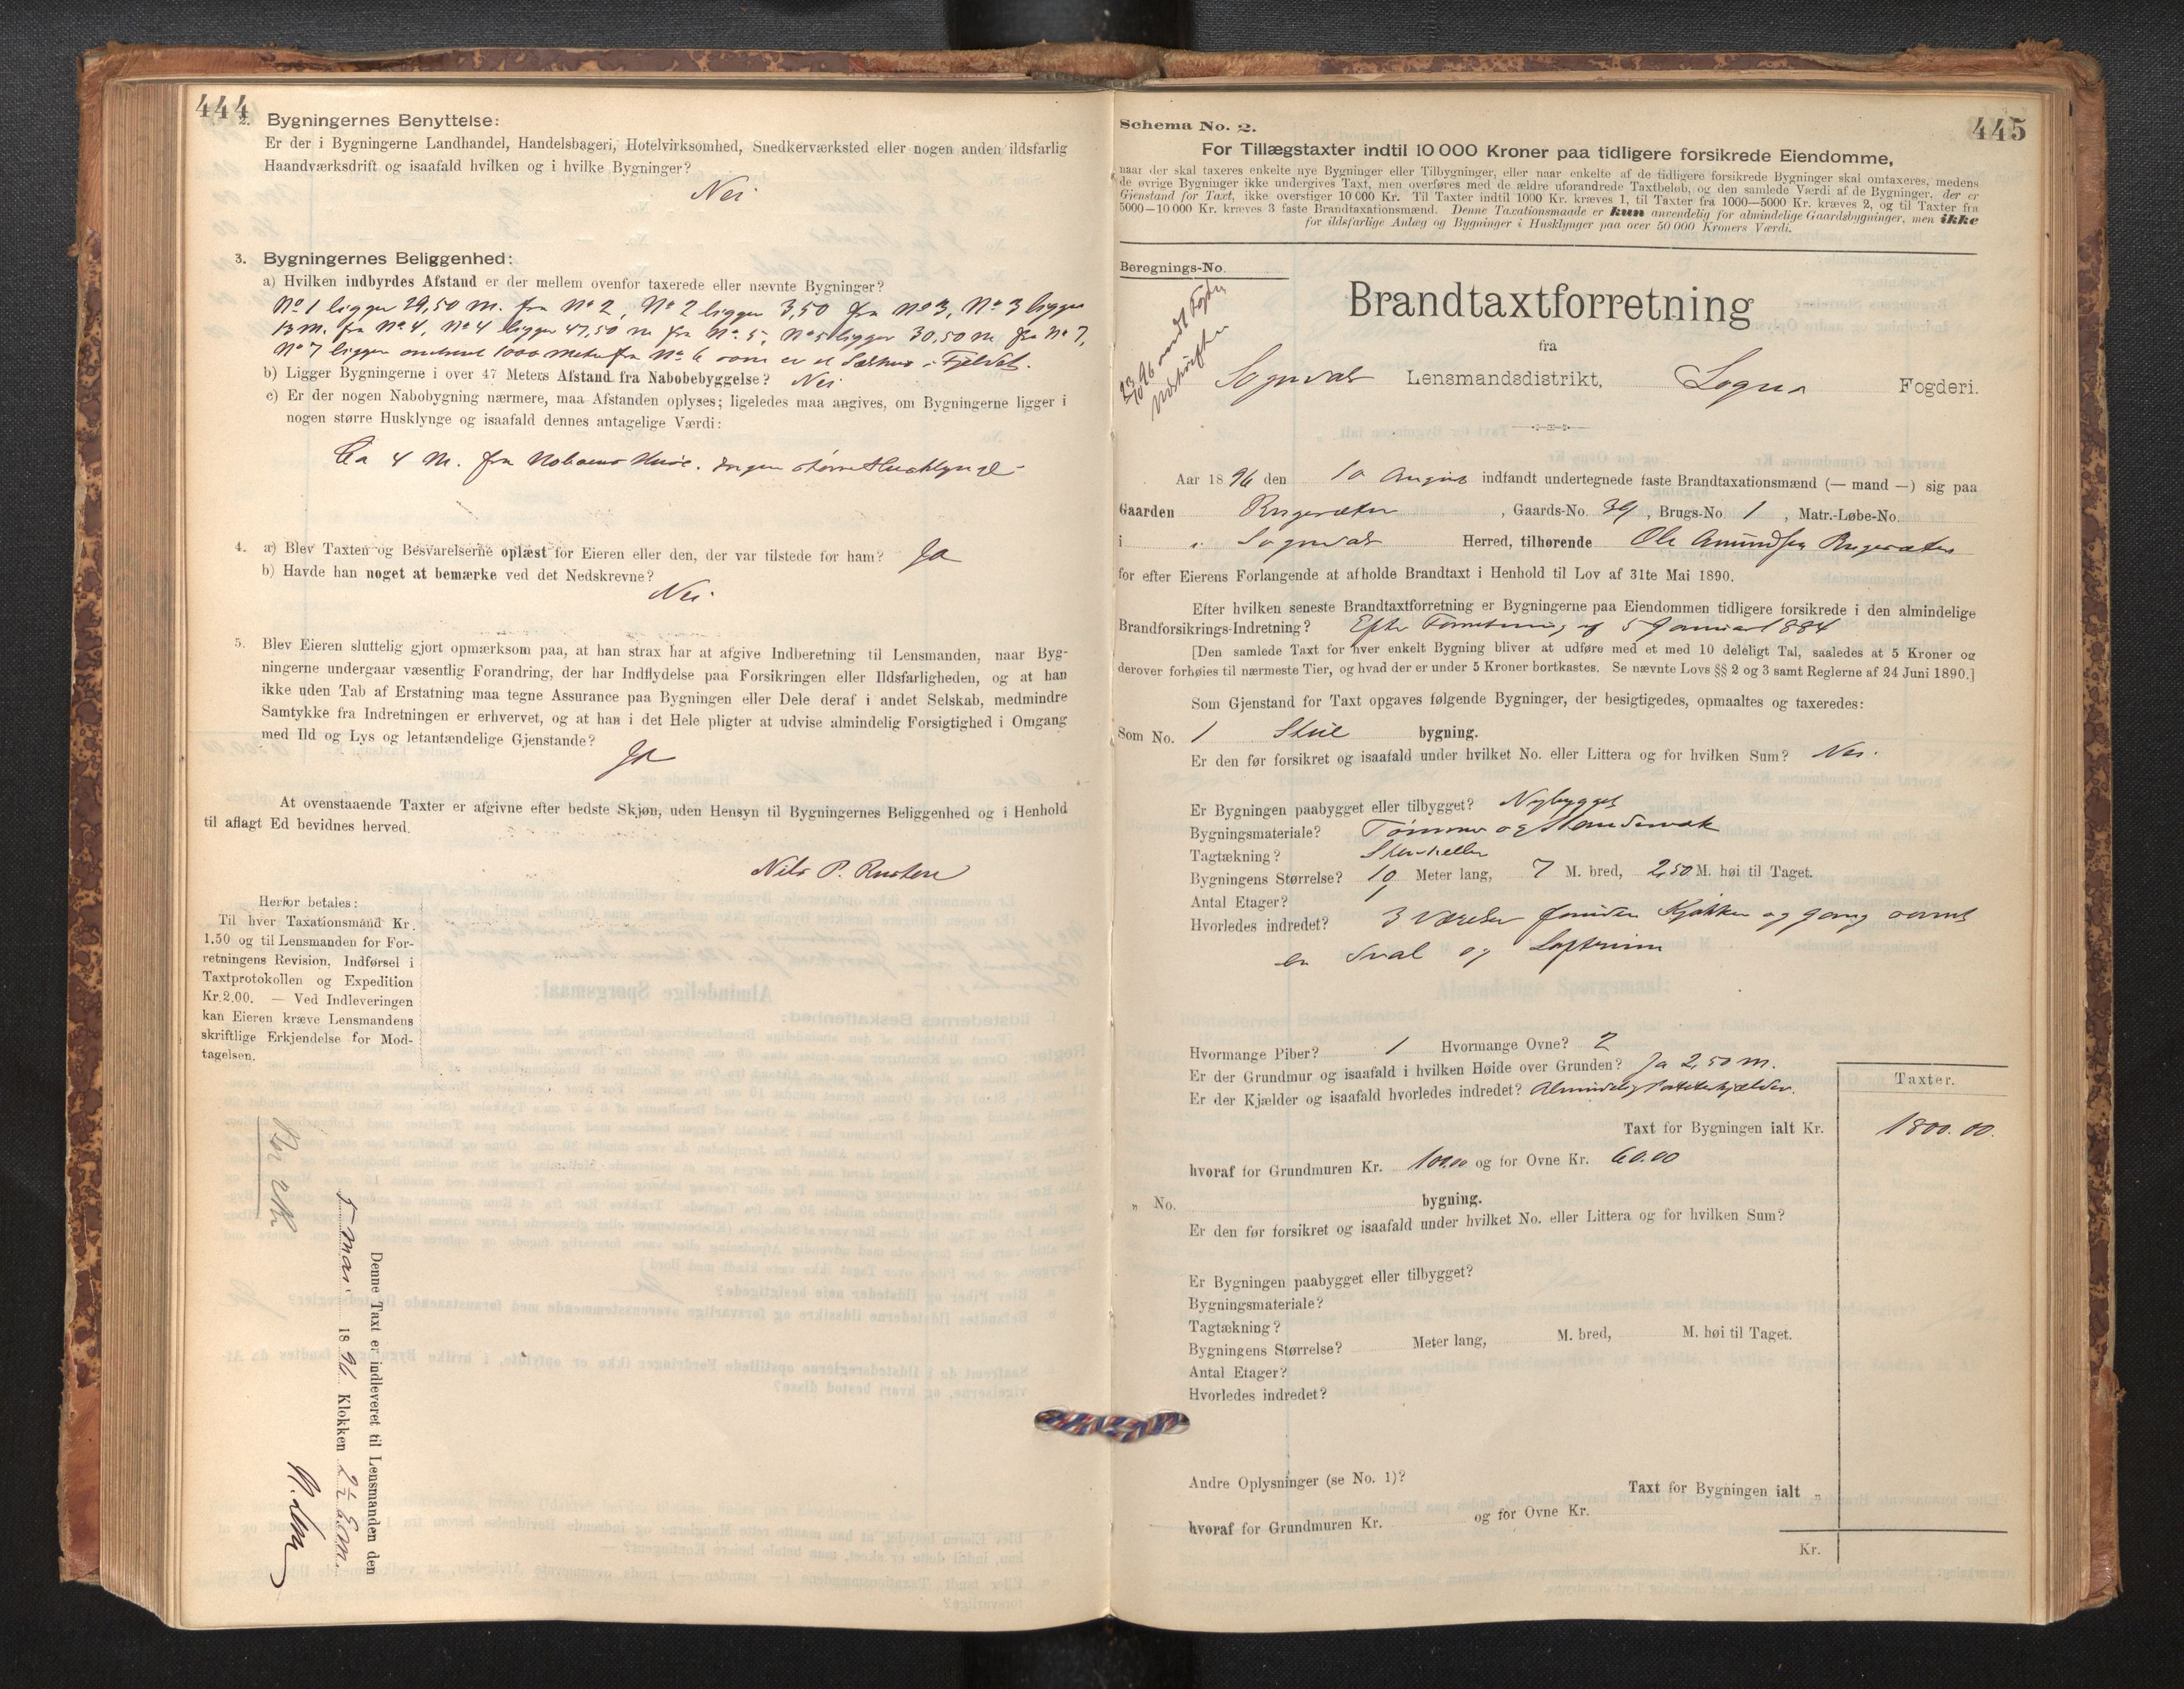 444
2. Bygningernes Benyttelse:
Er der i Bygningerne Landhandel, Handelsbageri, Hotelvirksomhed, Snedkerværksted eller nogen anden ildsfarlig
Haandværksdrift og isaafald hvilken og i hvilke Bygninger?
Nei
3. Bygningernes Beliggenhed:
a) Hvilken indbyrdes Afstand er der mellem ovenfor taxerede eller nævnte Bygninger?
No 1 ligger 29,50 m. fra No 2, No 2 ligger 3,50 fra No 3, No 3 ligger
13 m. fra No 4, No 4 ligger 47,50 m fra No 5, No 5 ligger 30,50 m fra No 7,
No 7 ligger omtrent 1000 meter fra No 6 som er et Sælhus i Fjeldet.
b) Ligger Bygningerne i over 47 Meters Afstand fra Nabobebyggelse? Nei
c) Er der nogen Nabobygning nærmere, maa Afstanden oplyses; ligeledes maa angives, om Bygningerne ligger i
nogen større Husklynge og isaafald dennes antagelige Værdi:
Ca 4 M. fra Naboens Huse. Ingen større Husklynge
4. a) Blev Taxten og Besvarelserne oplæst for Eieren eller den, der var tilstede for ham? Ja
b) Havde han noget at bemærke ved det Nedskrevne?
Nei
5. Blev Eieren sluttelig gjort opmærksom paa, at han strax har at afgive Indberetning til Lensmanden, naar Byg-
ningerne undergaar væsentlig Forandring, der har Indflydelse paa Forsikringen eller Ildsfarligheden, og at han
ikke uden Tab af Erstatning maa tegne Assurance paa Bygningen eller Dele deraf i andet Selskab, medmindre
Samtykke fra Indretningen er erhvervet, og at han i det Hele pligter at udvise almindelig Forsigtighed i Omgang
med Ild og Lys og letantændelige Gjenstande?
Ja
At ovenstaaende Taxter er afgivne efter bedste Skjøn, uden Hensyn til Bygningernes Beliggenhed og i Henhold
til aflagt Ed bevidnes herved.
Nils P.
Herfor betales:
Til hver Taxationsmand Kr.
1.50 og til Lensmanden for For-
retningens Revision, Indførsel i
Taxtprotokollen og Expedition
Kr. 2.00. — Ved Indleveringen
kan Eieren kræve Lensmandens
skriftlige Erkjendelse for Mod-
tagelsen.
Denne Taxt er indleveret til Lensmanden den
5 mai 1896 Klokken 2 1/2 Em.
445
Schema No. 2.
For Tillægstaxter indtil 10 000 Kroner paa tidligere forsikrede Eiendomme,
naar der skal taxeres enkelte nye Bygninger eller Tilbygninger, eller naar enkelte af de tidligere forsikrede Bygninger skal omtaxeres, medens
de øvrige Bygninger ikke undergives Taxt, men overføres med de ældre uforandrede Taxtbeløb, og den samlede Værdi af de Bygninger, der er
Gjenstand for Taxt, ikke overstiger 10 000 Kr. Til Taxter indtil 1000 Kr. kræves 1, til Taxter fra 1000—5000 Kr. kræves 2, og til Taxter fra
5000—10 000 Kr. kræves 3 faste Brandtaxationsmænd. Denne Taxationsmaade er kun anvendelig for almindelige Gaardsbygninger, men ikke
for ildsfarlige Anlæg og Bygninger i Husklynger paa over 50 000 Kroners Værdi.
Beregnings-No.
Brandtaxtforretning
fra
Sogndal Lensmandsdistrikt, Sogns Fogderi.
Aar 1896 den 10 August indfandt undertegnede faste Brandtaxationsmænd (— mand —) sig paa
Gaarden , Gaards-No. 39, Brugs-No. 1, Matr.-Løbe-No.
i Sogndal Herred, tilhørende Ole Amundsen
for efter Eierens Forlangende at afholde Brandtaxt i Henhold til Lov af 31te Mai 1890.
Efter hvilken seneste Brandtaxtforretning er Bygningerne paa Eiendommen tidligere forsikrede i den almindelige
Brandforsikrings-Indretning? Efter Forretning af 5 Januar 1884
[Den samlede Taxt for hver enkelt Bygning bliver at udføre med et med 10 deleligt Tal, saaledes at 5 Kroner og
derover forhøies til nærmeste Tier, og hvad der er under 5 Kroner bortkastes. Se nævnte Lovs §§ 2 og 3 samt Reglerne af 24 Juni 1890.]
Som Gjenstand for Taxt opgaves følgende Bygninger, der besigtigedes, opmaaltes og taxeredes:
Som No. 1 bygning.
Er den før forsikret og isaafald under hvilket No. eller Littera og for hvilken Sum? Nei.
Er Bygningen paabygget eller tilbygget? Nybygget
Bygningsmateriale? Tømmer og Standerværk
Tagtækning? Stenheller
Bygningens Størrelse? 10 Meter lang, 7 M. bred, 2,50 M. høi til Taget.
Antal Etager? 1
Hvorledes indredet? 3 Værelser foruden Kjøkken og Gang samt
en Sval og Loftsrum
Hvormange Piber? 1 Hvormange Ovne? 2
Er der Grundmur og isaafald i hvilken Høide over Grunden? Ja 2,50 m.
Er der Kjælder og isaafald hvorledes indredet? Almindelig Potetekjælder.
Taxter.
Taxt for Bygningen ialt Kr. 1800.00.
hvoraf for Grundmuren Kr. 100.00 og for Ovne Kr. 60.00
„ No. bygning.
Er den før forsikret og isaafald under hvilket No. eller Littera og for hvilken Sum?
Er Bygningen paabygget eller tilbygget?
Bygningsmateriale?
Tagtækning?
Bygningens Størrelse? Meter lang, M. bred, M. høi til Taget.
Antal Etager?
Hvorledes indredet?
Andre Oplysninger (se No. 1)?
Taxt for Bygningen ialt „
hvoraf for Grundmuren Kr. og for Ovne Kr.
Kr.